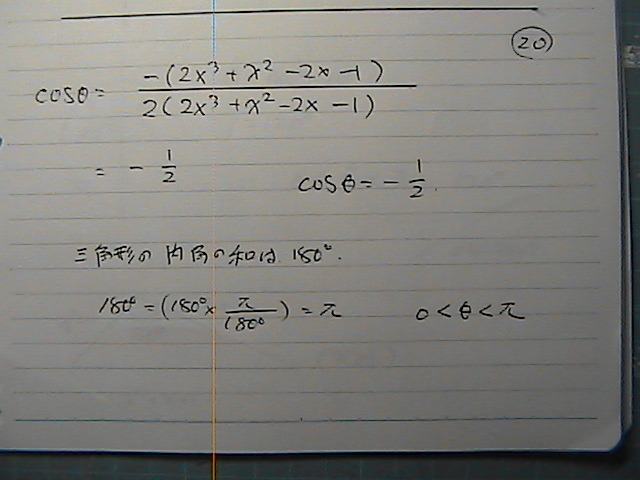 ⑳
cosθ= -(2x³+x²-2x-1) / 2(2x³+x²-2x-1)
= - 1/2 cosθ=- 1/2.
三角形の内角の和は 180°.
180°=(180°× π/180°)=π 0<θ<π